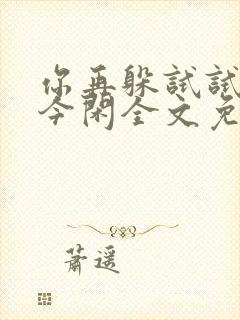 你再躲试试
今闲全文免
萧遥